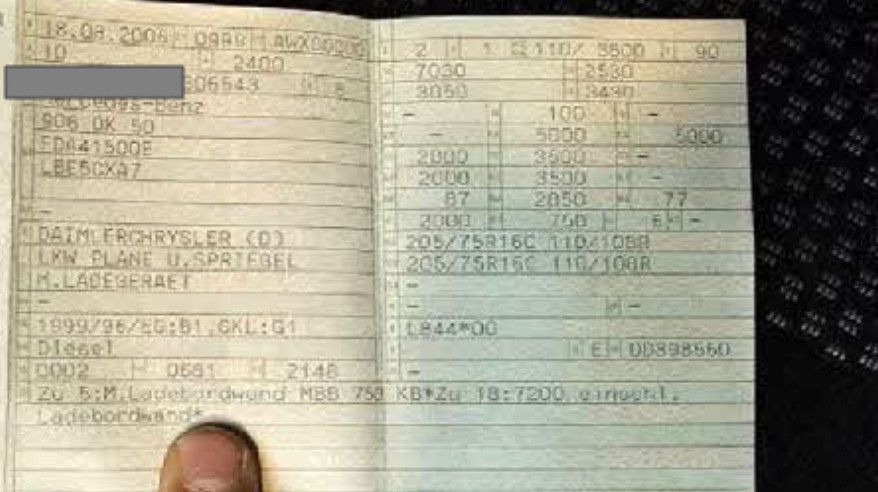 18.09.2006 0999 AWX00000
10 2400
06543 8
Mercedes-Benz
906 OK 50
FDA41500B
LBE5CXA7
-
DAIMLERCHRYSLER (D)
LKW PLANE U.SPRIEGEL
M.LADEGERAET
-
1999/96/EG;B1,GKL:G1
Diesel
0002 0681 2148
2 1 110/ 3800 90
7030 2530
3050 3430
- 100 -
- 5000 5000
2000 3500 -
2000 3500 -
87 2050 77
2000 750 6 -
205/75R16C 110/108R
205/75R16C 110/108R
-
- -
L844*00
E 00898560
-
Zu 5:M.Ladebordwand MBB 750 KB*Zu 18:7200 einschl.
Ladebordwand*